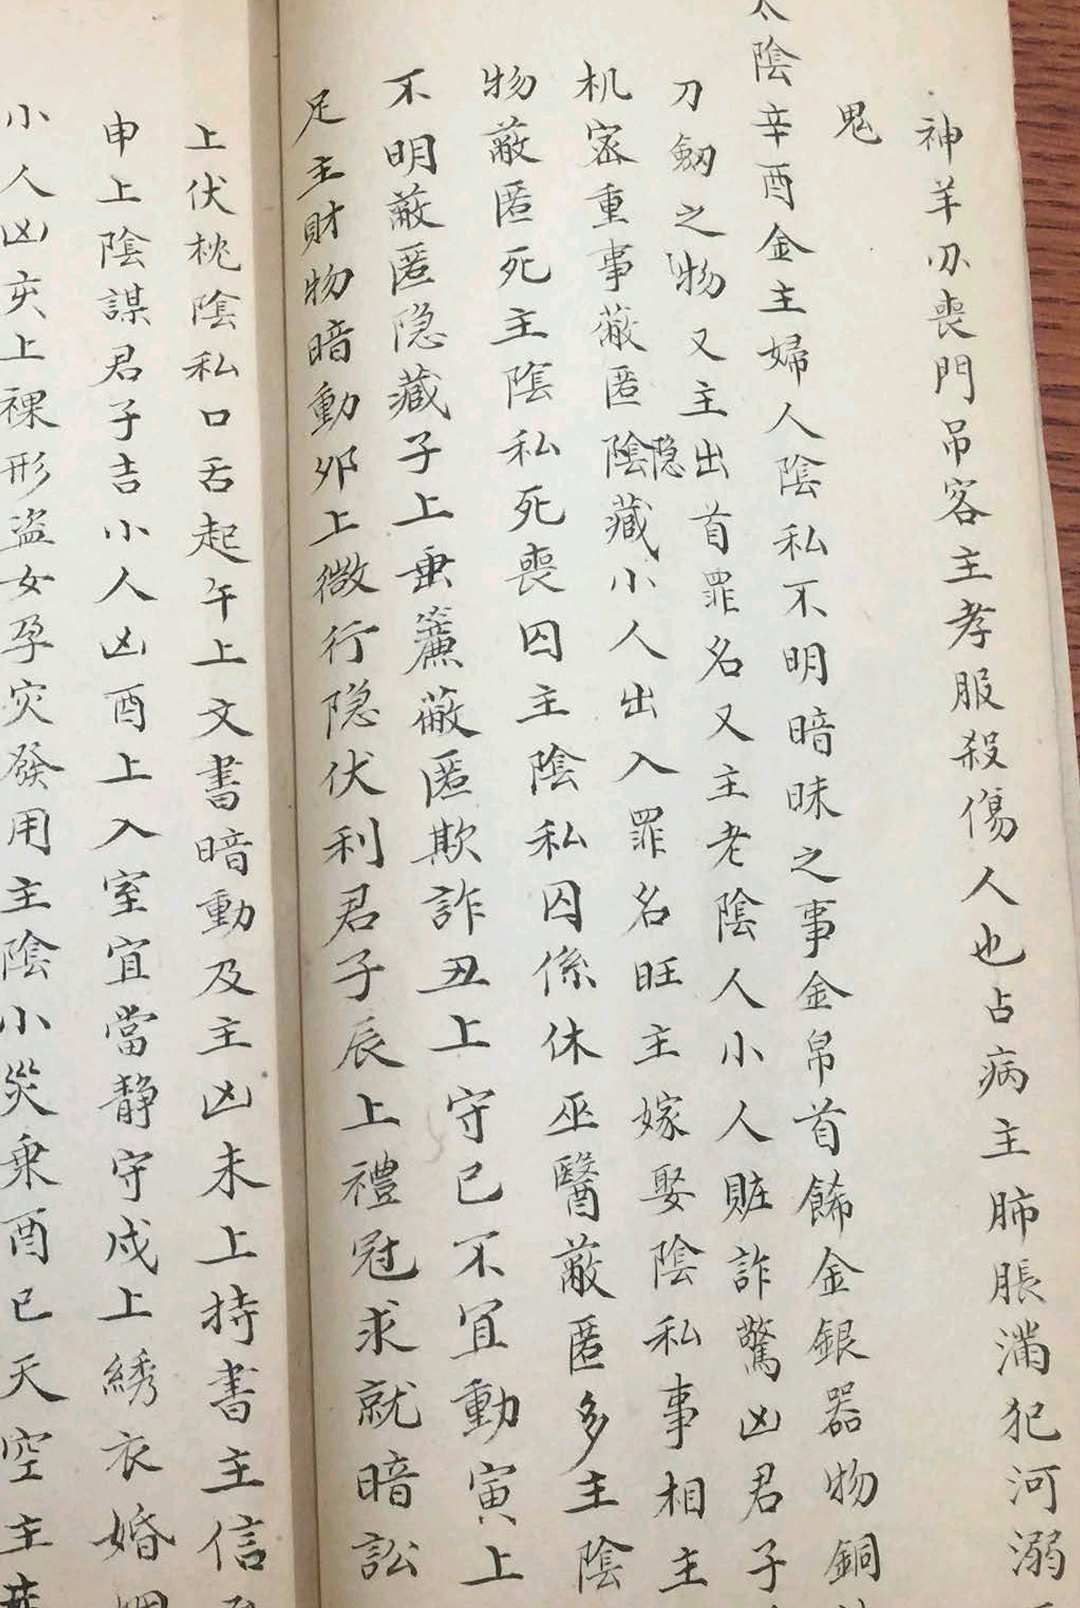 神羊刃喪門吊客主孝服殺傷人也占病主肺脹滿犯河溺
鬼
太陰辛酉金主婦人陰私不明暗昧之事金帛首餙金銀器物銅
刀劒之物又主出首罪名又主老陰人小人賍詐驚凶君子
机密重事蔽匿陰隐藏小人出入罪名旺主嫁娶陰私事相主
物蔽匿死主陰私死喪囚主陰私囚係休巫醫蔽匿多主陰
不明蔽匿隐藏子上垂簾蔽匿欺詐丑上守己不宜動寅上
足主財物暗動夘上微行隐伏利君子辰上禮冠求就暗訟
上伏枕陰私口舌起午上文書暗動及主凶未上持書主信
申上陰謀君子吉小人凶酉上入室宜當静守戍上綉衣婚
小人凶亥上裸形盗女孕灾發用主陰小災乗酉已天空主